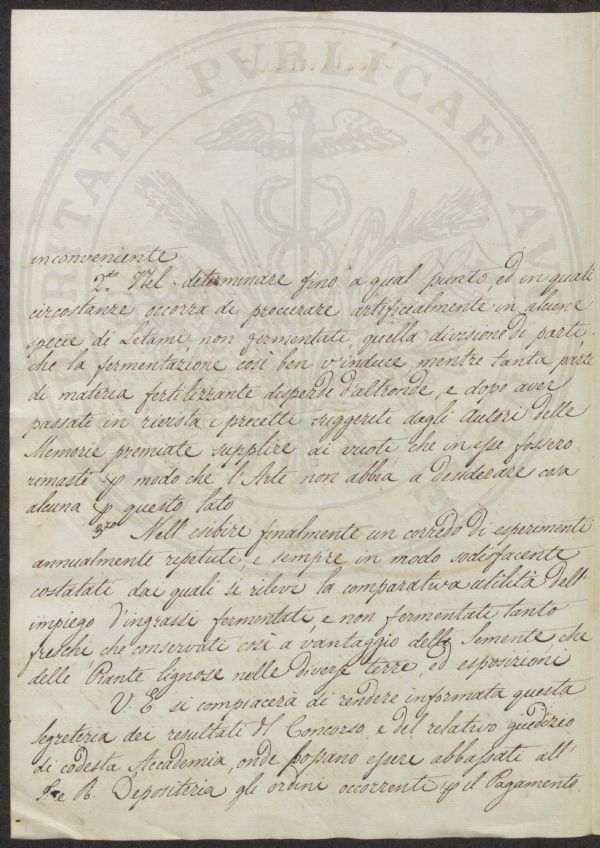 PVBLICAE
inconveniente
2.do Nel determinare fino a qual punto, ed in quali
circostanze occorra di procurare artificialmente in alcune
specie di Letami non fermentati, quella divisione di parti,
che la fermentazione così ben v'induce mentre tanta parte
di materia fertilizzante disperde d'altronde, e dopo aver
passati in rivista i precetti suggeriti dagli Autori delle
Memorie premiate supplire ai vuoti che in esse fossero
rimasti modo che l'Arte non abbia a desiderare cosa
alcuna questo lato
3.zo Nell'esibire finalmente un corredo di esperimenti
annualmente repetuti, e sempre in modo sodisfacente
costatati dai quali si rilevi la comparativa utilità dell'
impiego d'ingrassi fermentati, e non fermentati tanto
freschi che conservati così a vantaggio delle Semente, che
delle Piante lignose nelle diverse terre, ed esposizioni
V. E. si compiacerà di rendere informata questa
Segreteria dei resultati del Concorso, e del relativo giudizio
di codesta Accademia, onde possano essere abbassati all'
I. e R. Depositeria gli ordini occorrenti il Pagamento.